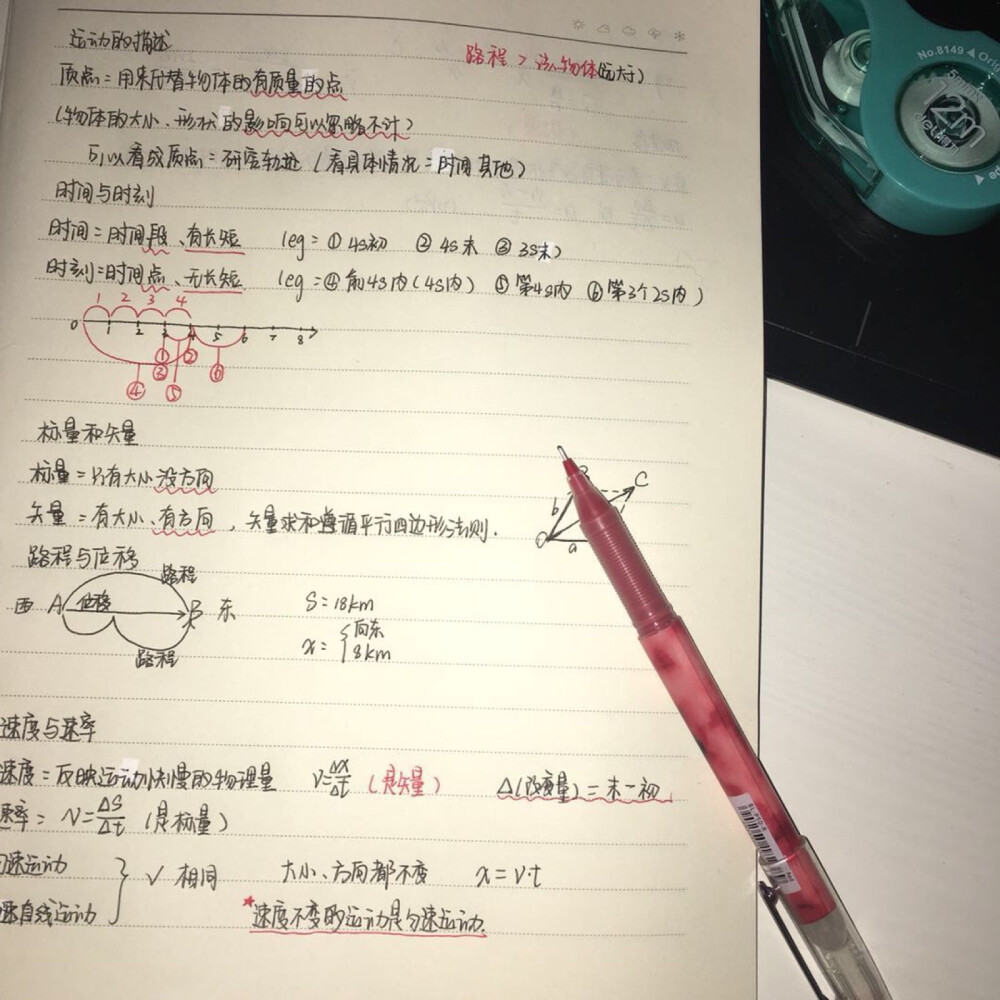 运动的描述
路程 > 该物体(远大于)
质点:用来代替物体的有质量的点
(物体的大小、形状的影响可以忽略不计)
可以看成质点:研究轨迹(看具体情况:时间 其他)
时间与时刻
时间:时间段、有长短 (eg:① 4s初 ② 4s末 ③ 3s末)
时刻:时间点、无长短 (eg:④ 前4s内(4s内) ⑤ 第4s内 ⑥ 第3个2s内)
1 2 3 4
0 1 2 3 4 5 6 7 8
① ②
③ ⑥
④ ⑤
标量和矢量
标量:只有大小没方向
矢量:有大小、有方向,矢量求和遵循平行四边形法则.
b C
O a
路程与位移
路程
西 A 位移 B 东 S=18km
x= {向东 8km
路程
速度与速率
速度:反映运动快慢的物理量 v=Δx/Δt (是矢量) Δ(改变量)=末-初
速率:v=ΔS/Δt (是标量)
速运动
} √ 相同 大小、方向都不变 x=v·t
速直线运动
*速度不变的运动是匀速运动.
No.8149
5mm×
12m